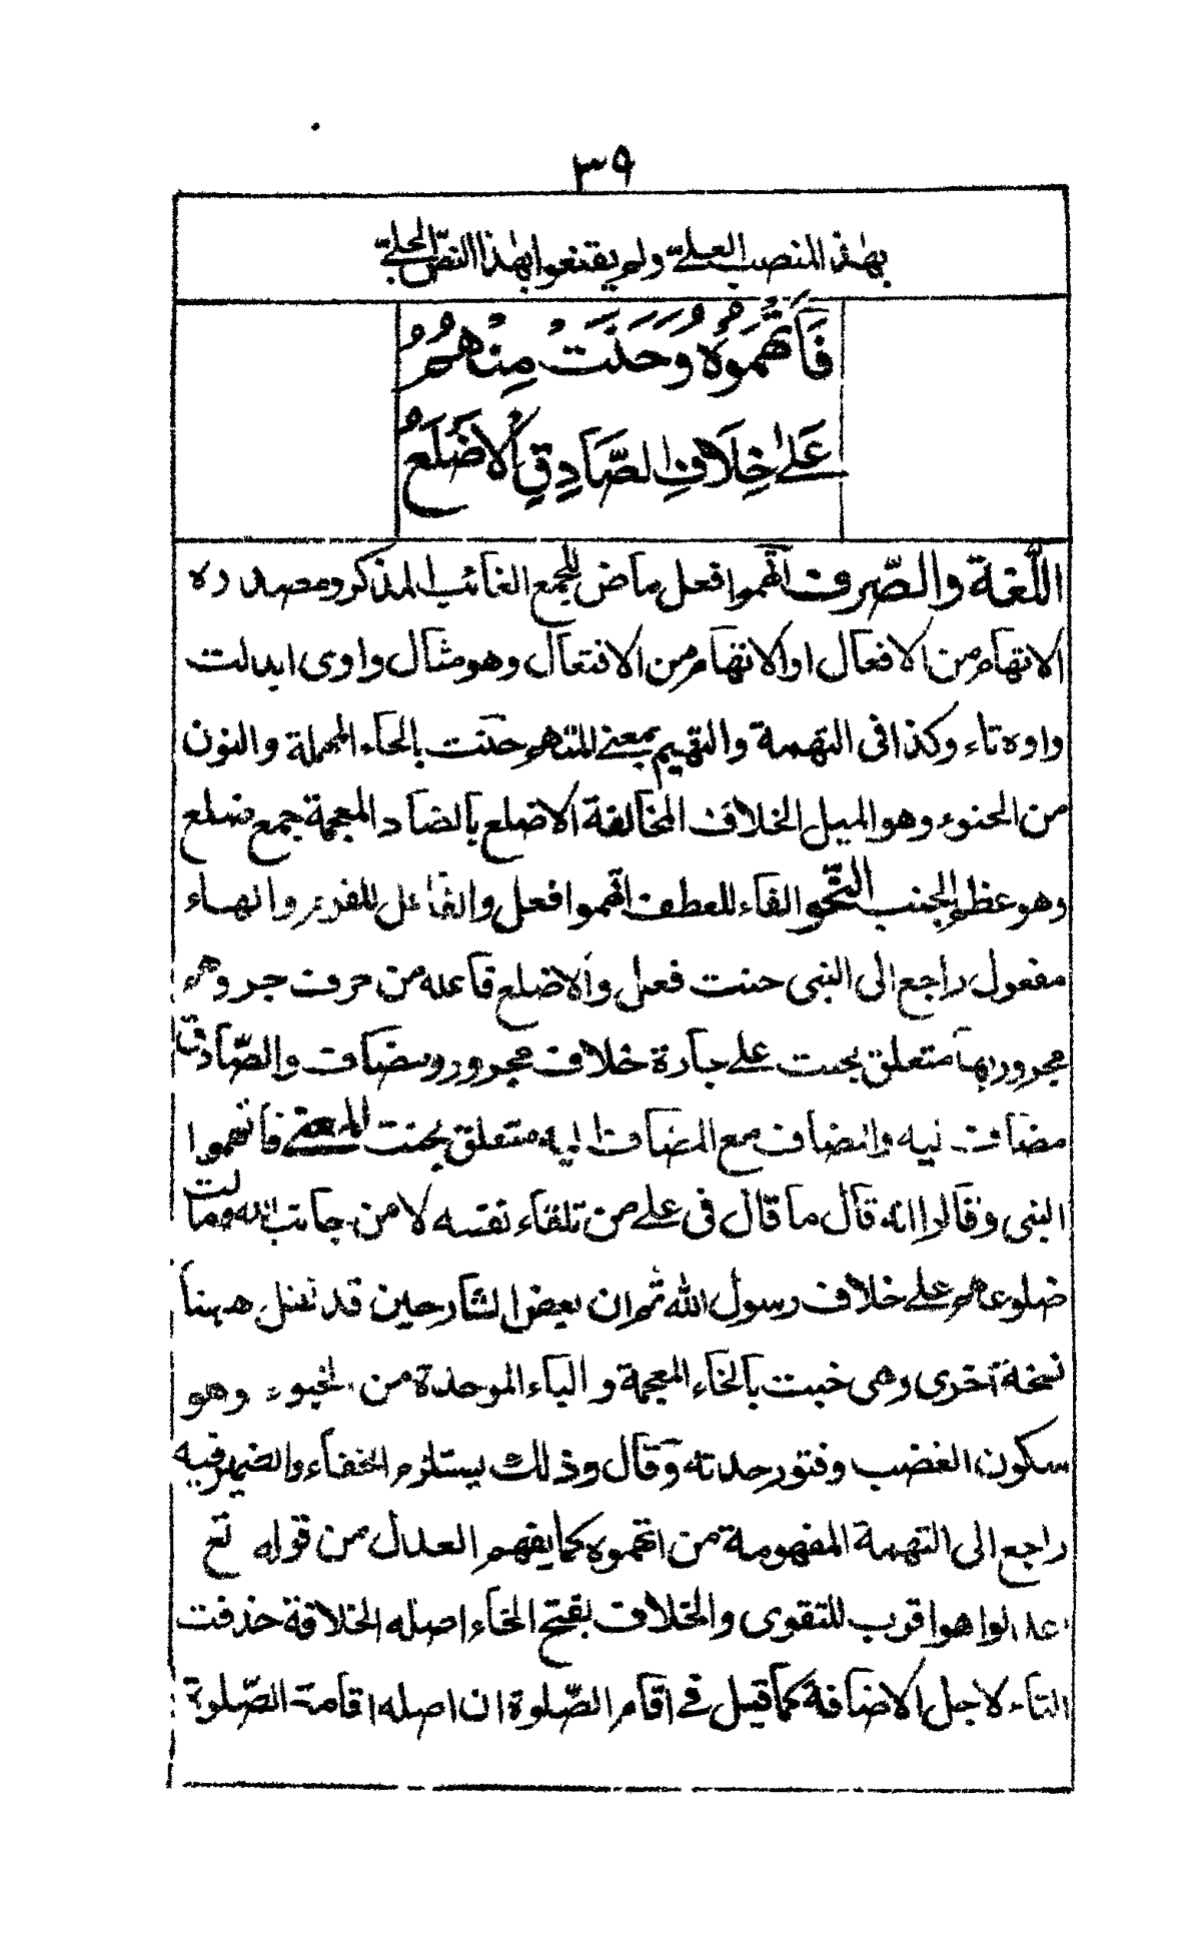 ٣٩
بهٰذ المنصب العليّ ولم يقنعوا بهٰذا النصّ الجليّ
فَاتَّهَمُوْهُ وَحَنَتْ مِنْهُمُ
عَلٰى خِلَافِ الصَّادِقِ الْاَضْلَعُ
اللّغة والصّرف اتّهموا فعل ماض للجمع الغائب المذكر ومصدره
الاتهام من الافعال او الاتهام من الافتعال وهو مثال واوى ابدلت
واوه تاء وكذا فى التهمة والتهيم بمعنى المتهم حنت بالحاء المهملة والنون
من الحنوء وهو الميل الخلاف المخالفة الاضلع بالضاد المعجمة جمع ضلع
وهو عظم الجنب النّحو الفاء للعطف اتّهموا فعل والفاعل للفرير والهاء
مفعول راجع الى النبى حنت فعل والاضلع فاعله من حرف جر وهم
مجرور بها متعلق بحنت على جارة خلاف مجرور ومضاف والصّادق
مضاف ليه والمضاف مع المضاف اليه متعلق بحنت المعنى فاتهموا
النبى وقالوا انه قال ما قال فى على من تلقاء نفسه لا من جانب الله ومالت
ضلوعهم على خلاف رسول الله ثم ان بعض الشارحين قد نقل ههنا
نسخة اخرى وهى خبت بالخاء المعجمة والباء الموحدة من الخبوء وهو
سكون الغضب وفتور حدته وقال وذلك يستلزم الخفاء والضمير فيه
راجع الى التهمة المفهومة من اتهموه كما يفهم العدل من قوله تع
اعدلوا هو اقرب للتقوى والخلاف بفتح الخاء اصله الخلافة حذفت
التاء لاجل الاضافة كما قيل فى اقام الصّلوة ان اصله اقامة الصّلوة